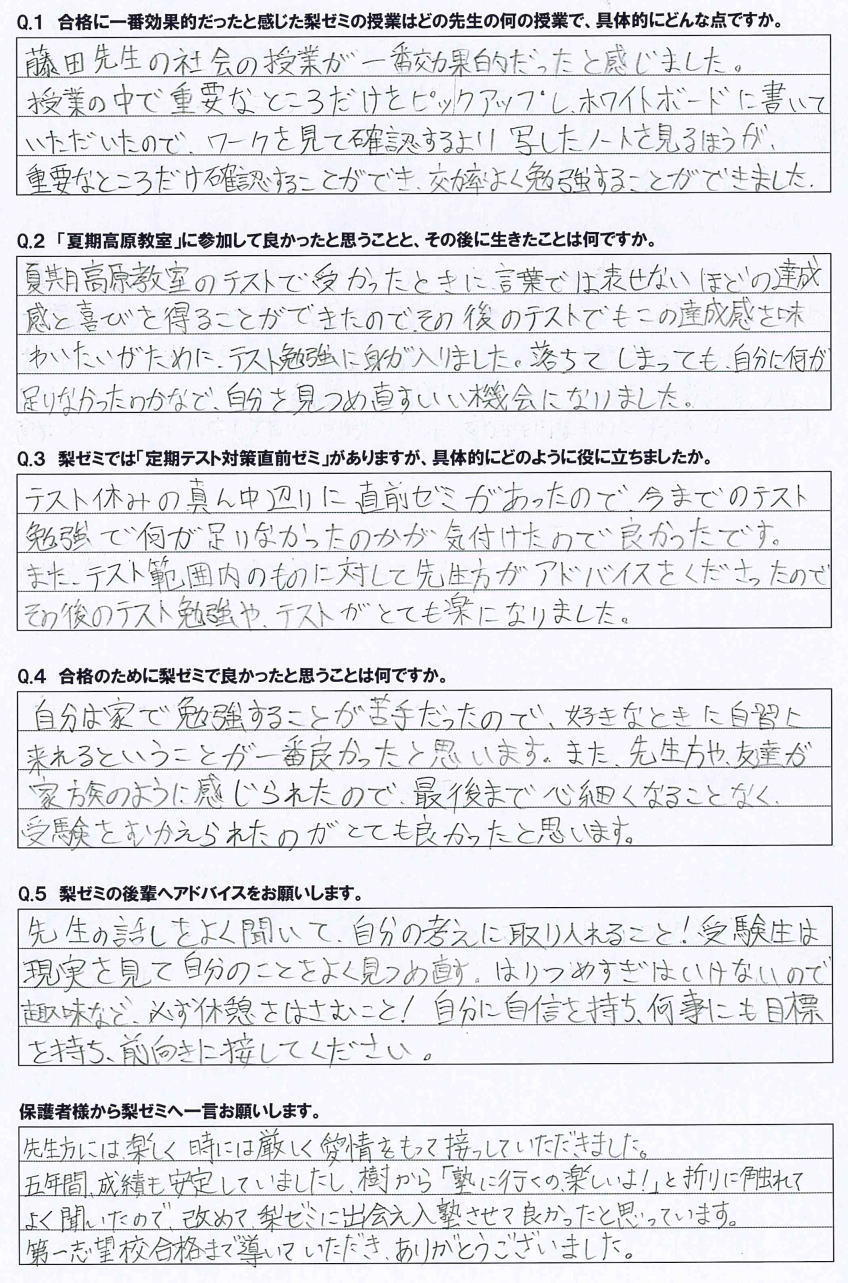 Q.1 合格に一番効果的だったと感じた梨ゼミの授業はどの先生の何の授業で、具体的にどんな点ですか。
藤田先生の社会の授業が一番効果的だったと感じました。
授業の中で重要なところだけをピックアップし、ホワイトボードに書いて
いただいたので、ワークを見て確認するより写したノートを見るほうが、
重要なところだけ確認することができ、効率よく勉強することができました。
Q.2 「夏期高原教室」に参加して良かったと思うことと、その後に生きたことは何ですか。
夏期高原教室のテストで受かったときに、言葉では表せないほどの達成
感と喜びを得ることができたので、その後のテストでもこの達成感を味
わいたいがために、テスト勉強に身が入りました。落ちてしまっても、自分に何が
足りなかったのかなで、自分を見つめ直すいい機会になりました。
Q.3 梨ゼミでは「定期テスト対策直前ゼミ」がありますが、具体的にどのように役に立ちましたか。
テスト休みの真ん中辺りに直前ゼミがあったので、今までのテスト
勉強で何が足りなかったのかが気付けたので良かったです。
また、テスト範囲内のものに対して先生方がアドバイスをくださったので
その後のテスト勉強や、テストがとても楽になりました。
Q.4 合格のために梨ゼミで良かったと思うことは何ですか。
自分は家で勉強することが苦手だったので、好きなときに自習に
来れるということが一番良かったと思います。また、先生方や、友達が
家族のように感じられたので、最後まで心細くなることなく、
受験をむかえられたのがとても良かったと思います。
Q.5 梨ゼミの後輩へアドバイスをお願いします。
先生の話しをよく聞いて、自分の考えに取り入れること！受験生は
現実を見て自分のことをよく見つめ直す。はりつめすぎはいけないので
趣味など、必ず休憩をはさむこと！自分に自信を持ち、何事にも目標
を持ち、前向きに接してください。
保護者様から梨ゼミへ一言お願いします。
先生方には、楽しく時には厳しく愛情をもって接っしていただきました。
五年間、成績も安定していましたし、樹から「塾に行くの、楽しいよ！」と折りに触れて
よく聞いたので、改めて、梨ゼミに出会え入塾させて良かったと思っています。
第一志望校合格まで導いていただき、ありがとうございました。